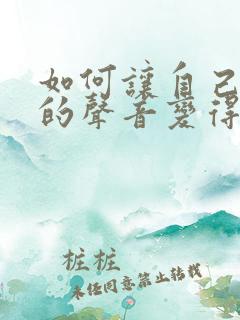 如何讓自己
的聲音變得
桩桩
未经同意禁止转载